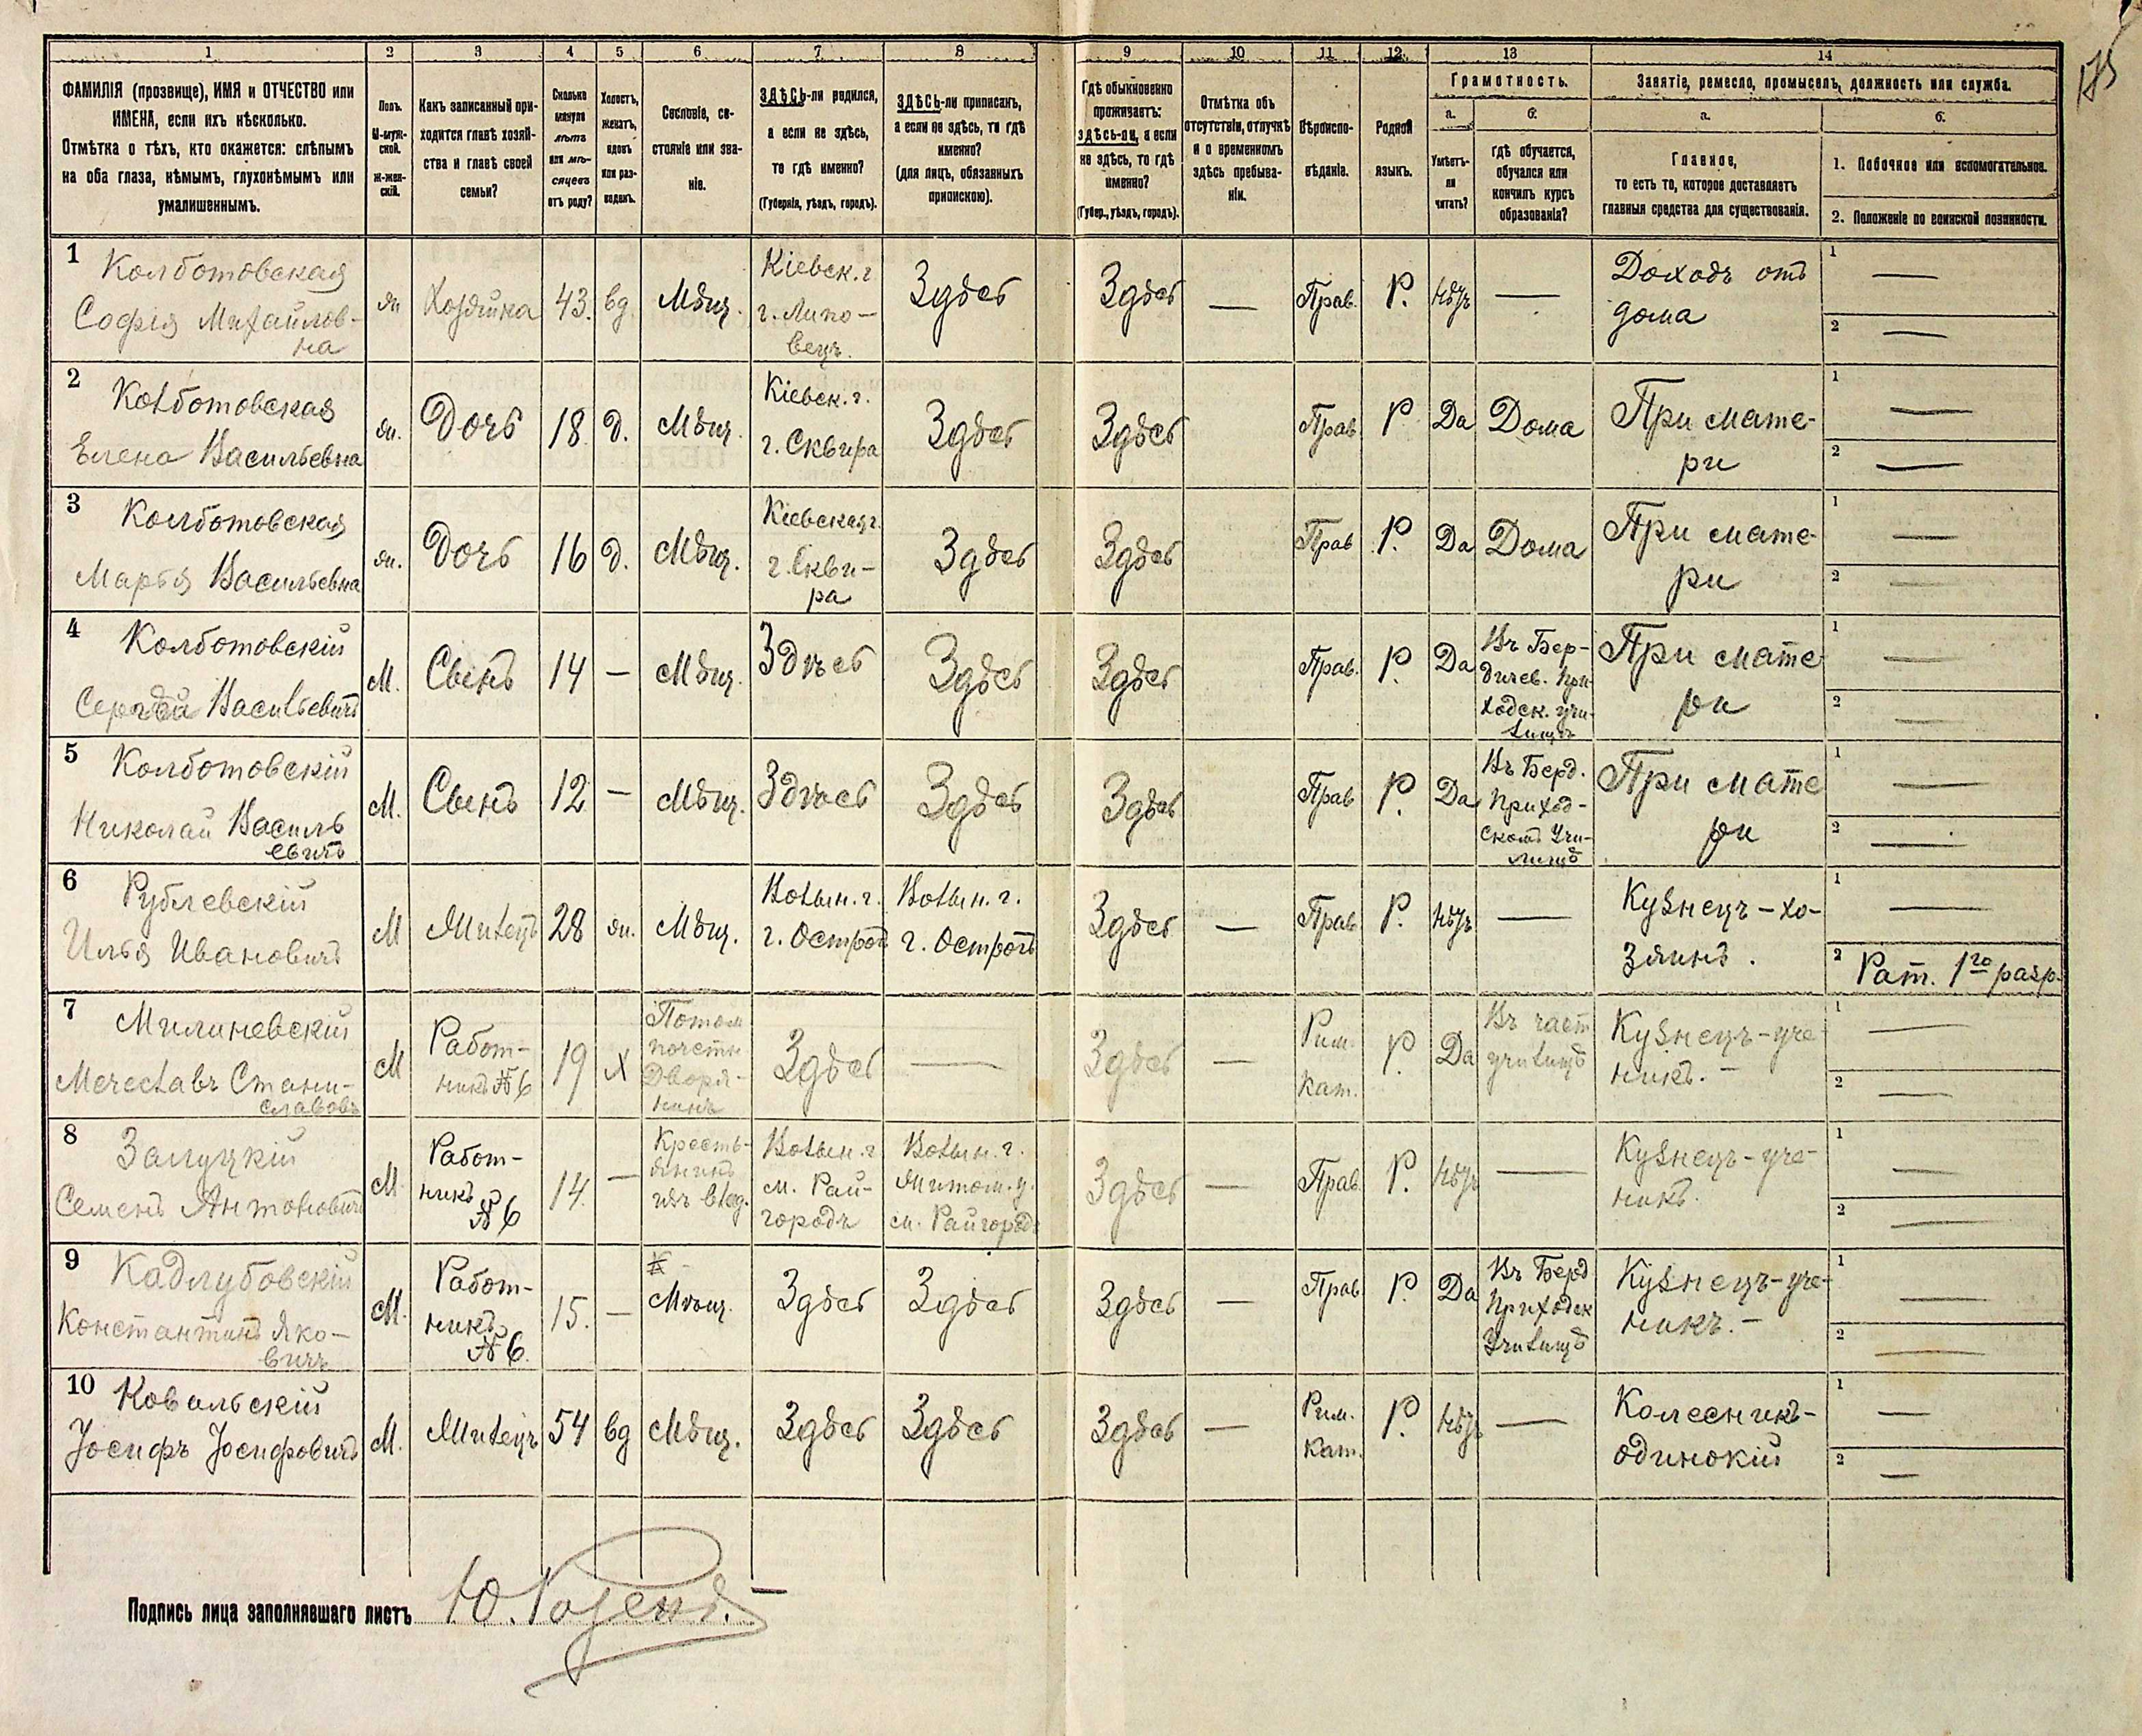 175
1 2 3 4 5 6 7 8 9 10 11 12 13 14
ФАМИЛІЯ (прозвище), ИМЯ и ОТЧЕСТВО или
ИМЕНА, если ихъ нѣсколько.
Отмѣтка о тѣхъ, кто окажется: слѣпымъ
на оба глаза, нѣмымъ, глухонѣмымъ или
умалишеннымъ.
Полъ.
М-муж-
ской.
Ж-жен-
скій.
Какъ записанный при-
ходится главѣ хозяй-
ства и главѣ своей
семьи?
Сколько
минуло
лѣтъ
или мѣ-
сяцевъ
отъ роду?
Холостъ,
женатъ,
вдовъ
или раз-
веденъ.
Сословіе, со-
стояніе или зва-
ніе.
ЗДѢСЬ-ли родился,
а если не здѣсь,
то гдѣ именно?
(Губернія, уѣздъ, городъ).
ЗДѢСЬ-ли приписанъ,
а если не здѣсь, то гдѣ
именно?
(для лицъ, обязанныхъ
припискою).
Гдѣ обыкновенно
проживаетъ:
здѣсь-ли, а если
не здѣсь, то гдѣ
именно?
(Губер., уѣздъ, городъ).
Отмѣтка объ
отсутствіи, отлучкѣ
и о временномъ
здѣсь пребыва-
ніи.
Вѣроиспо-
вѣданіе.
Родной
языкъ.
Грамотность.
а.
Умѣетъ-
ли
читать?
б.
гдѣ обучается,
обучался или
кончилъ курсъ
образованія?
Занятіе, ремесло, промыселъ, должность или служба.
а.
Главное,
то есть то, которое доставляетъ
главныя средства для существованія.
б.
1. Побочное или вспомогательное.
2. Положеніе по воинской повинности.
1
Колботовская
Софія Михайлов-
на
жн
Хозяйка
43.
вд
Мѣщ.
Кіевск. г
г. Липо-
вецъ.
Здѣсь
Здѣсь
—
Прав.
Р.
Нѣтъ
—
Доходъ отъ
дома
1 —
2 —
2
Колботовская
Елена Васильевна
жн.
Дочь
18.
д.
Мѣщ.
Кіевск. г.
г. Сквира
Здѣсь
Здѣсь
Прав
Р
Да
Дома
При мате-
ри
1 —
2 —
3
Колботовская
Марья Васильевна
жн.
Дочь
16
д.
Мѣщ.
Кіевская г.
г. Скви-
ра
Здѣсь
Здѣсь
Прав
Р.
Да
Дома
При мате-
ри
1 —
2 —
4
Колботовскій
Сергѣй Васильевичъ
М.
Сынъ
14
—
Мѣщ.
Здѣсь
Здѣсь
Здѣсь
Прав.
Р.
Да
Въ Бер-
дичев. При-
ходск. учи-
лищѣ
При мате
ри
1 —
2 —
5
Колботовскій
Николай Василь
евичъ
М.
Сынъ
12
—
Мѣщ.
Здѣсь
Здѣсь
Здѣсь
Прав
Р.
Да
Въ Берд.
Приход-
скомъ Учи-
лищѣ
При мате
ри
1 —
2 —
6
Рублевскій
Илья Ивановичъ
М
Жилецъ
28
жн.
Мѣщ.
Волын. г.
г. Острог
Волын. г.
г. Острогъ
Здѣсь
—
Прав
Р.
Нѣтъ
—
Кузнецъ-хо-
зяинъ.
1 —
2 Рат. 1го разр.
7
Милиневскій
Мечеславъ Стани-
славовъ
М
Работ-
никъ №6
19
Х
Потом
почетн
Дворя-
нинъ
Здѣсь
—
Здѣсь
—
Рим.
кат.
Р.
Да
Въ част
училищѣ
Кузнецъ-уче
никъ. —
1 —
2 —
8
Залуцкій
Семенъ Антоновичъ
М.
Работ-
никъ
№6
14.
—
Кресть-
янинъ
изъ влад.
Волын. г
м. Рай-
городъ
Волын. г.
Житом. у.
м. Райгородъ
Здѣсь
—
Прав
Р.
Нѣтъ
—
Кузнецъ-уче-
никъ.
1 —
2 —
9
Кадлубовскій
Константинъ Яко-
вичъ
М.
Работ-
никъ
№6.
15.
—
Мѣщ.
Здѣсь
Здѣсь
Здѣсь
—
Прав
Р.
Да
Въ Берд
Приходск
Училищѣ
Кузнецъ-уче-
никъ. —
1 —
2 —
10
Ковальскій
Іосифъ Іосифовичъ
М.
Жилецъ
54
вд
Мѣщ.
Здѣсь
Здѣсь
Здѣсь
—
Рим.
Кат.
Р.
Нѣтъ
—
Колесникъ-
одинокій
1 —
2 —
Подпись лица заполнявшаго листъ